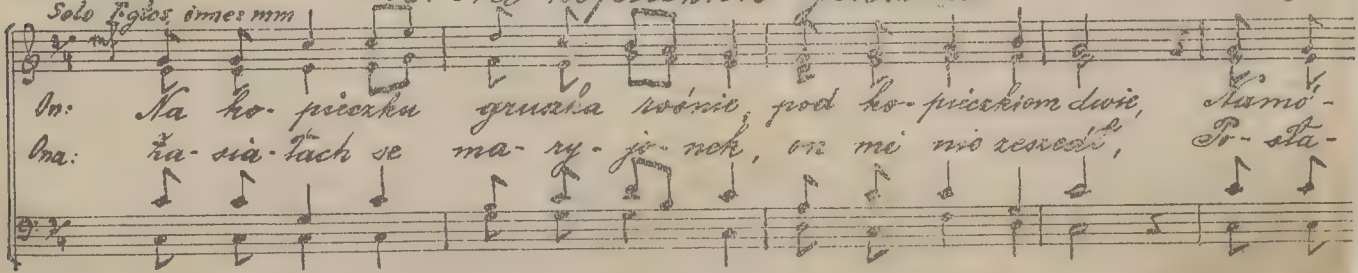 Solo I głos inne: mm
On: Na ko- pieczku gruszka rośnie, pod ko- pieczkiom dwie, Namó-
Ona: Za- sia- łach se ma- ry- jo- nek, on mi nie zeszedł, Po- sła-